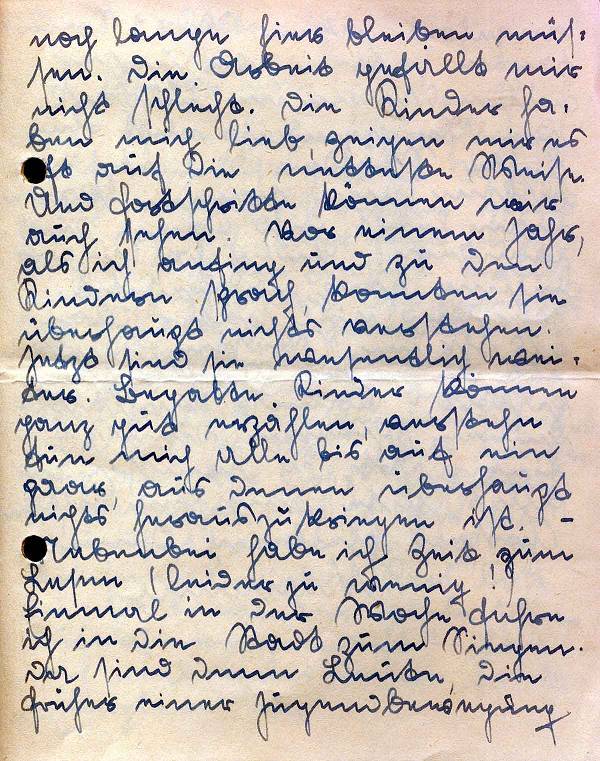 noch lange hier bleiben müs-
sen. Die Arbeit gefällt mir
nicht schlecht. Die Kinder ha-
ben mich lieb, zeigen mir es
oft auf die netteste Weise.
Und Fortschritte können wir
auch sehen. Vor einem Jahr,
als ich anfing und zu den
Kindern sprach, konnten sie
überhaupt nichts verstehen.
Jetzt sind sie wesentlich wei-
ter. Begabte Kinder können
ganz gut erzählen, verstehn
tun mich alle bis auf ein
paar, aus denen überhaupt
nichts herauszukriegen ist. –
Nebenbei habe ich Zeit zum
Lesen (leider zu wenig!)
Einmal in der Woche fahre
ich in die Stadt zum Singen.
Da sind denn Leute, die
früher einer Jugendbewegung